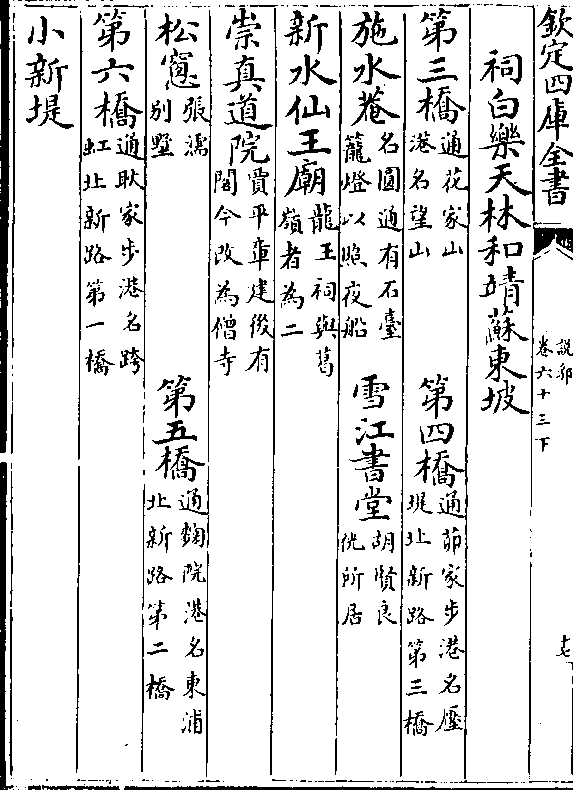 欽定四庫全書
說郛
卷六十三下
十七
祠白樂天林和靖蘇東坡
第三橋
通花家山
港名望山
第四橋
通茆家步港名壓
堤北新路第三橋
施水菴
名圓通有石臺
籠燈以照夜船
雪江書堂
胡賢良
侊所居
新水仙王廟
龍王祠與葛
嶺者為二
崇真道院
賈平章建後有
閣今改為僧寺
松窻
張濡
別墅
第五橋
通麴院港名東浦
北新路第二橋
第六橋
通耿家步港名跨
虹北新路第一橋
小新堤